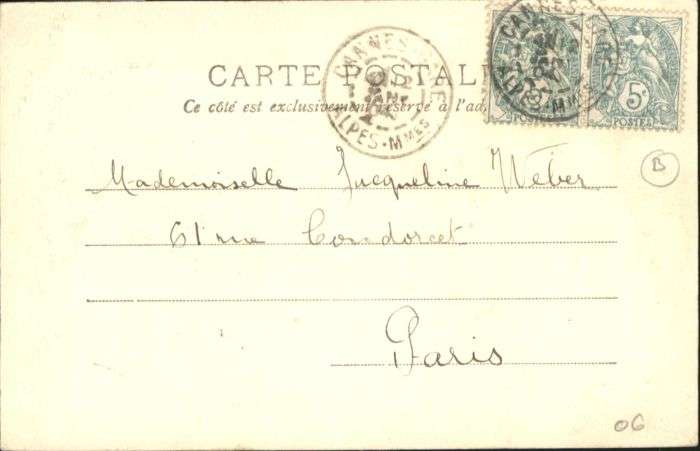 CARTE POSTALE
Ce côté est exclusivement réservé à l'ad
CANNES
ALPES-Mmes
CANNES
5c
POSTES
B
Mademoiselle Jacqueline Weber
61 rue Condorcet
Paris
06